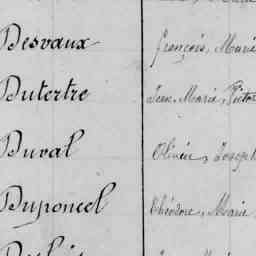 Desvaux François, Marie
Dutertre Jean, Marie, Victor
Duval Olivier, Joseph
Duponcel Théodore, Marie